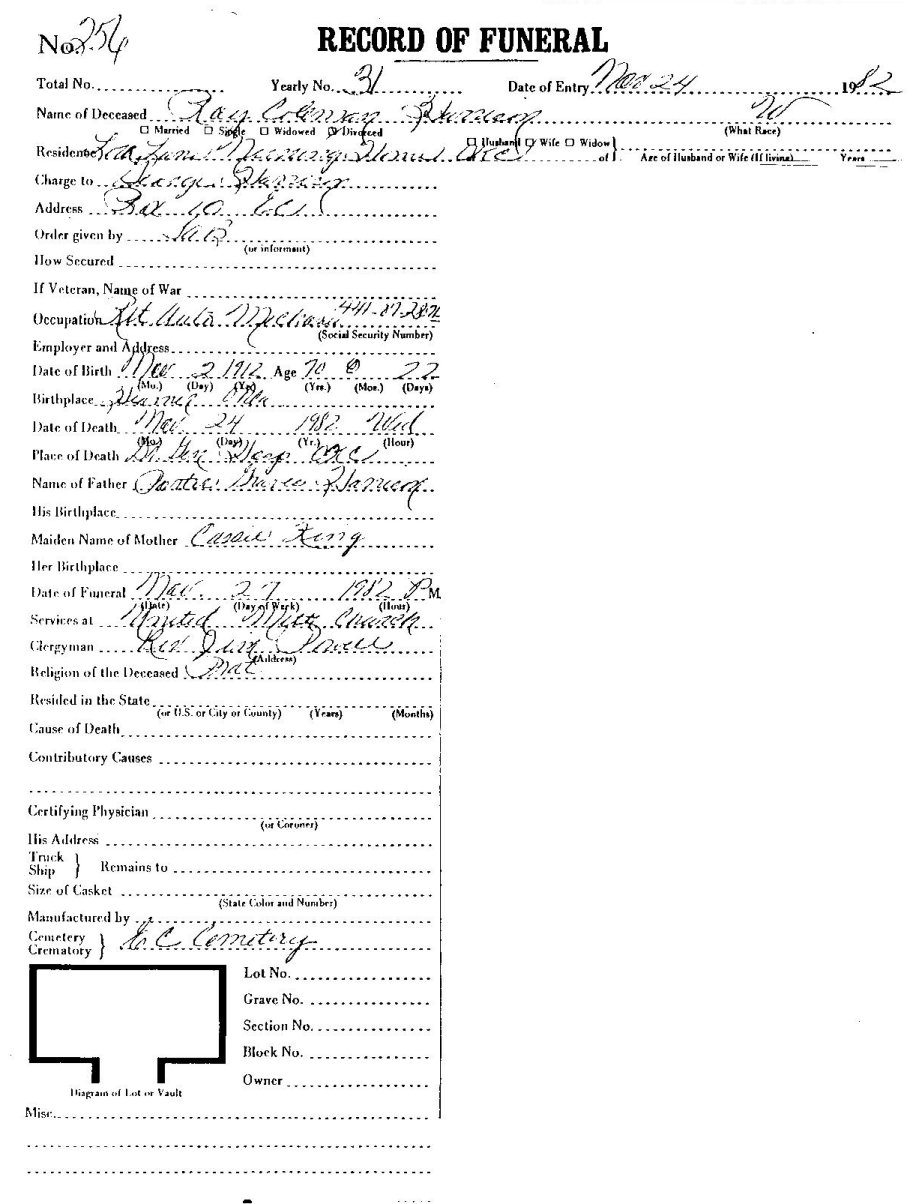 No. 256 RECORD OF FUNERAL
Total No. Yearly No. 31 Date of Entry Nov 24 1982
Name of Deceased Ray Coleman Harrison W
☐ Married ☐ Single ☐ Widowed ☑ Divorced (What Race)
Residence Nursing Home OKC ☐ Husband ☐ Wife ☐ Widow } of Age of Husband or Wife (If living) Years
Charge to George Harrison
Address Box 10 E.C.
Order given by
(or informant)
How Secured
If Veteran, Name of War
Occupation Ret Auto Mechanic
(Social Security Number)
Employer and Address
Date of Birth Nov 2 1912 Age 70 0 22
(Mo.) (Day) (Yr.) (Yrs.) (Mos.) (Days)
Birthplace Okla
Date of Death Nov. 24 1982 Wed
(Mo.) (Day) (Yr.) (Hour)
Place of Death Hosp OKC
Name of Father Harrison
His Birthplace
Maiden Name of Mother Cassie King
Her Birthplace
Date of Funeral Nov. 27 1982 P M.
(Date) (Day of Week) (Hour)
Services at United Meth Church
Clergyman Rev Jim Powell
(Address)
Religion of the Deceased Prot
Resided in the State
(or U.S. or City or County) (Years) (Months)
Cause of Death
Contributory Causes
Certifying Physician
(or Coroner)
His Address
Truck
Ship } Remains to
Size of Casket
(State Color and Number)
Manufactured by
Cemetery
Crematory } E C Cemetery
Lot No.
Grave No.
Section No.
Block No.
Owner
Diagram of Lot or Vault
Misc.